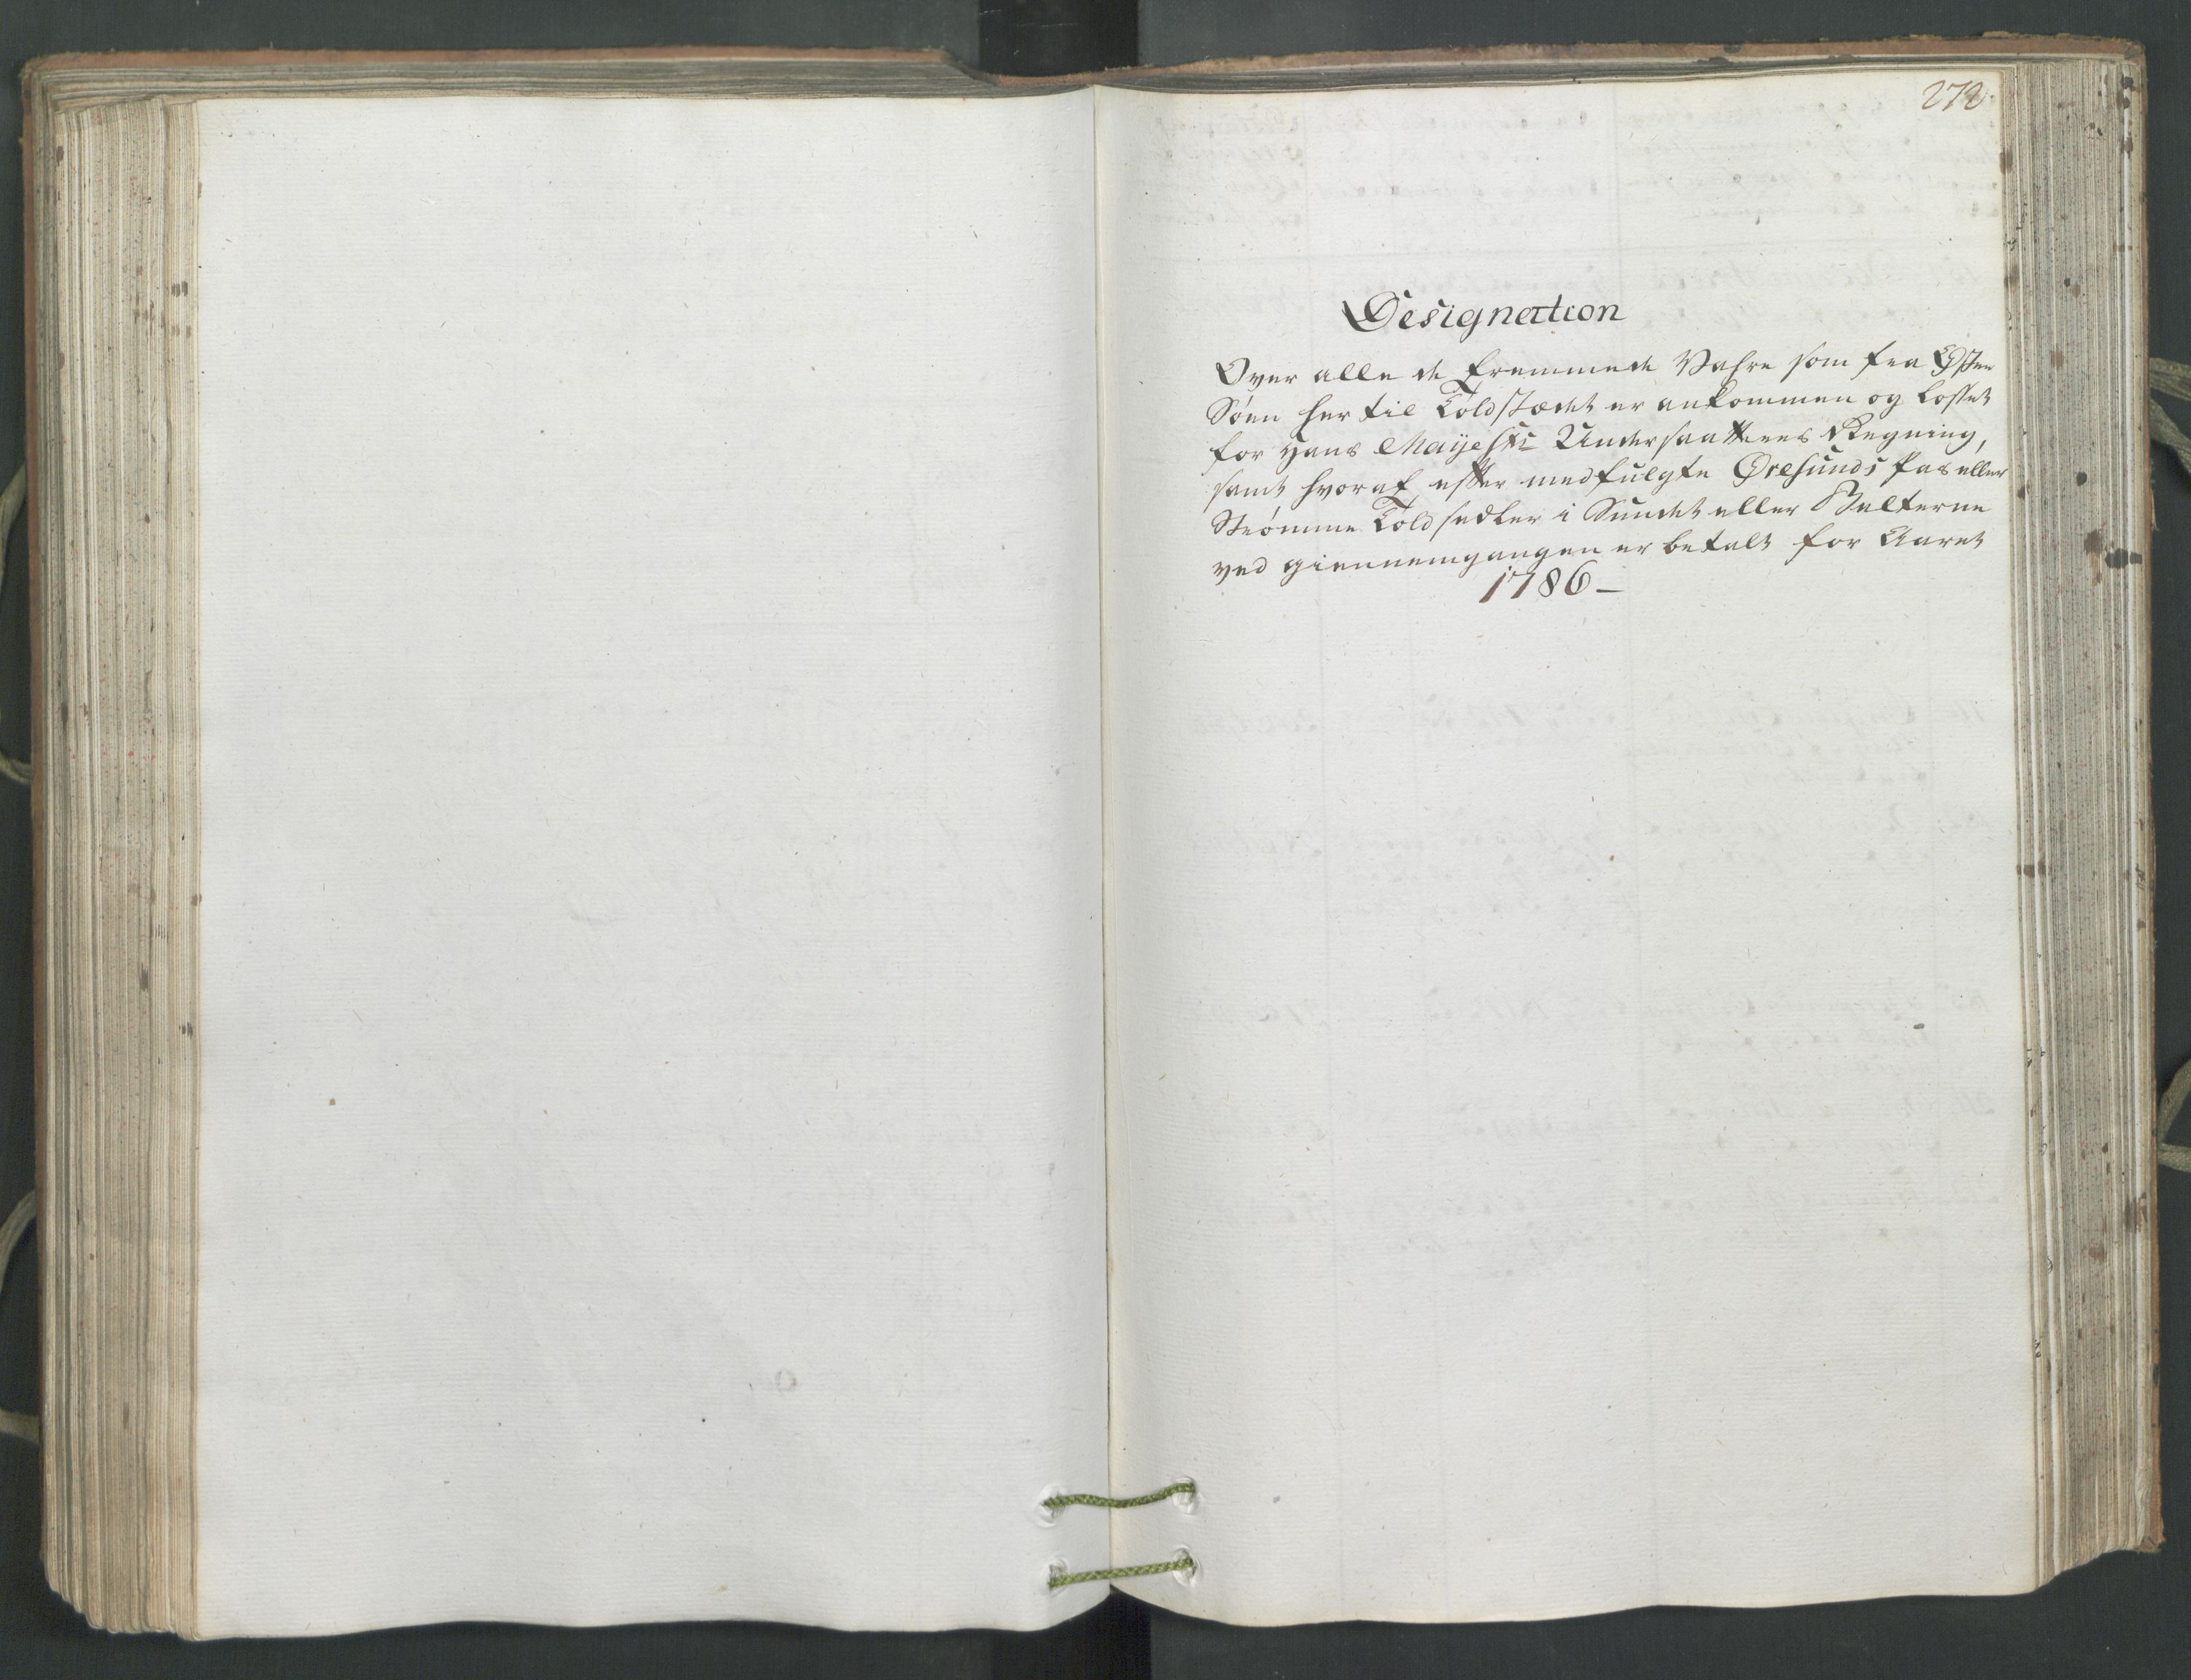 272
Designation
Over alle de fremmede Vahre som fra Øster
Søen her til Toldstædet er ankommen og losset
for Hans Mayest:s Undersaatteres Regning,
samt hvoraf efter medfulgte Øresunds Pas eller
Strømme Toldsedler i Sundet eller Belterne
ved giennemgangen er betalt for Aaret
1786-